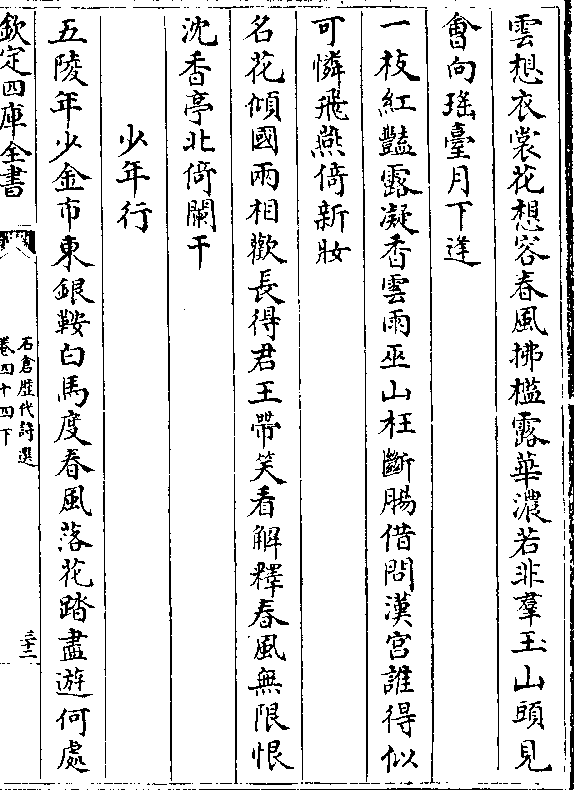 雲想衣裳花想容春風拂檻露華濃若非羣玉山頭見
會向瑤臺月下逢
一枝紅豔露凝香雲雨巫山枉斷腸借問漢宮誰得似
可憐飛燕倚新妝
名花傾國兩相歡長得君王帶笑看解釋春風無限恨
沈香亭北倚闌干
少年行
五陵年少金市東銀鞍白馬度春風落花踏盡遊何處
欽定四庫全書
石倉歷代詩選
卷四十四下
三十二